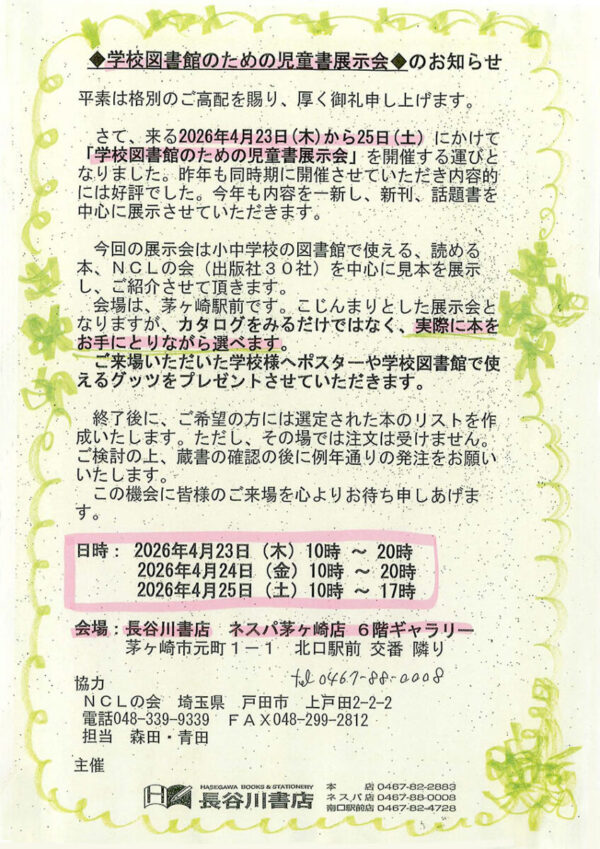 ◆学校図書館のための児童書展示会◆のお知らせ
平素は格別のご高配を賜り、厚く御礼申し上げます。
さて、来る2026年4月23日(木)から25日(土)にかけて
「学校図書館のための児童書展示会」を開催する運びと
なりました。昨年も同時期に開催させていただき内容的
には好評でした。今年も内容を一新し、新刊、話題書を
中心に展示させていただきます。
今回の展示会は小中学校の図書館で使える、読める
本、NCLの会(出版社30社)を中心に見本を展示
し、ご紹介させて頂きます。
会場は、茅ヶ崎駅前です。こじんまりとした展示会と
なりますが、カタログをみるだけではなく、実際に本を
お手にとりながら選べます。
ご来場いただいた学校様へポスターや学校図書館で使
えるグッツをプレゼントさせていただきます。
終了後に、ご希望の方には選定された本のリストを作
成いたします。ただし、その場では注文は受けません。
ご検討の上、蔵書の確認の後に例年通りの発注をお願い
いたします。
この機会に皆様のご来場を心よりお待ち申しあげま
す。
日時: 2026年4月23日(木)10時 ～ 20時
2026年4月24日(金)10時 ～ 20時
2026年4月25日(土)10時 ～ 17時
会場:長谷川書店 ネスパ茅ヶ崎店 6階ギャラリー
茅ヶ崎市元町1-1 北口駅前 交番 隣り
tel 0467-88-0008
協力
NCLの会 埼玉県 戸田市 上戸田2-2-2
電話048-339-9339 FAX048-299-2812
担当 森田・青田
主催
HASEGAWA BOOKS & STATIONERY
長谷川書店
本店 0467-82-2883
ネスパ店 0467-88-0008
南口駅前店 0467-82-4728